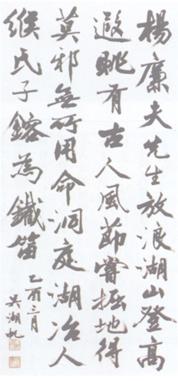 楊廉夫先生放浪湖山登高
遐眺有古人風節嘗掘地得
莫邪無所用命洞庭湖冶人
緱氏子鎔為鐵笛
乙酉三月
吳湖帆